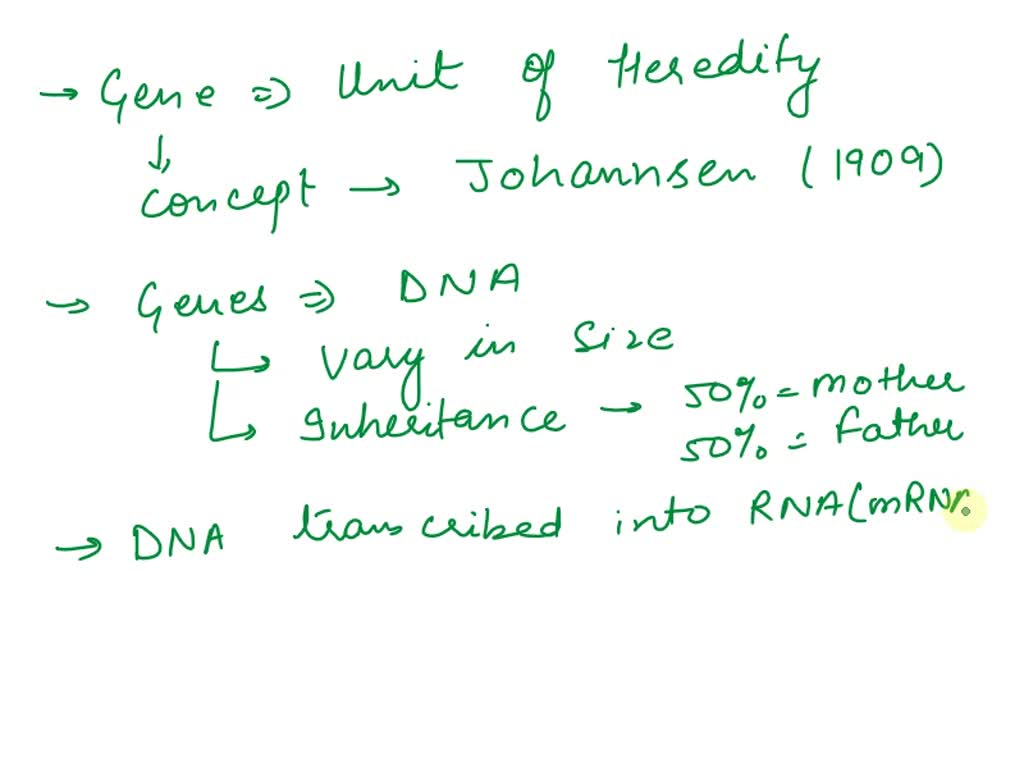 → Gene ⇒ Unit of Heredity
↓
concept → Johannsen (1909)
→ Genes ⇒ DNA
↳ Vary in Size
↳ Inheritance → 50% = mother
50% = Father
→ DNA transcribed into RNA (mRN